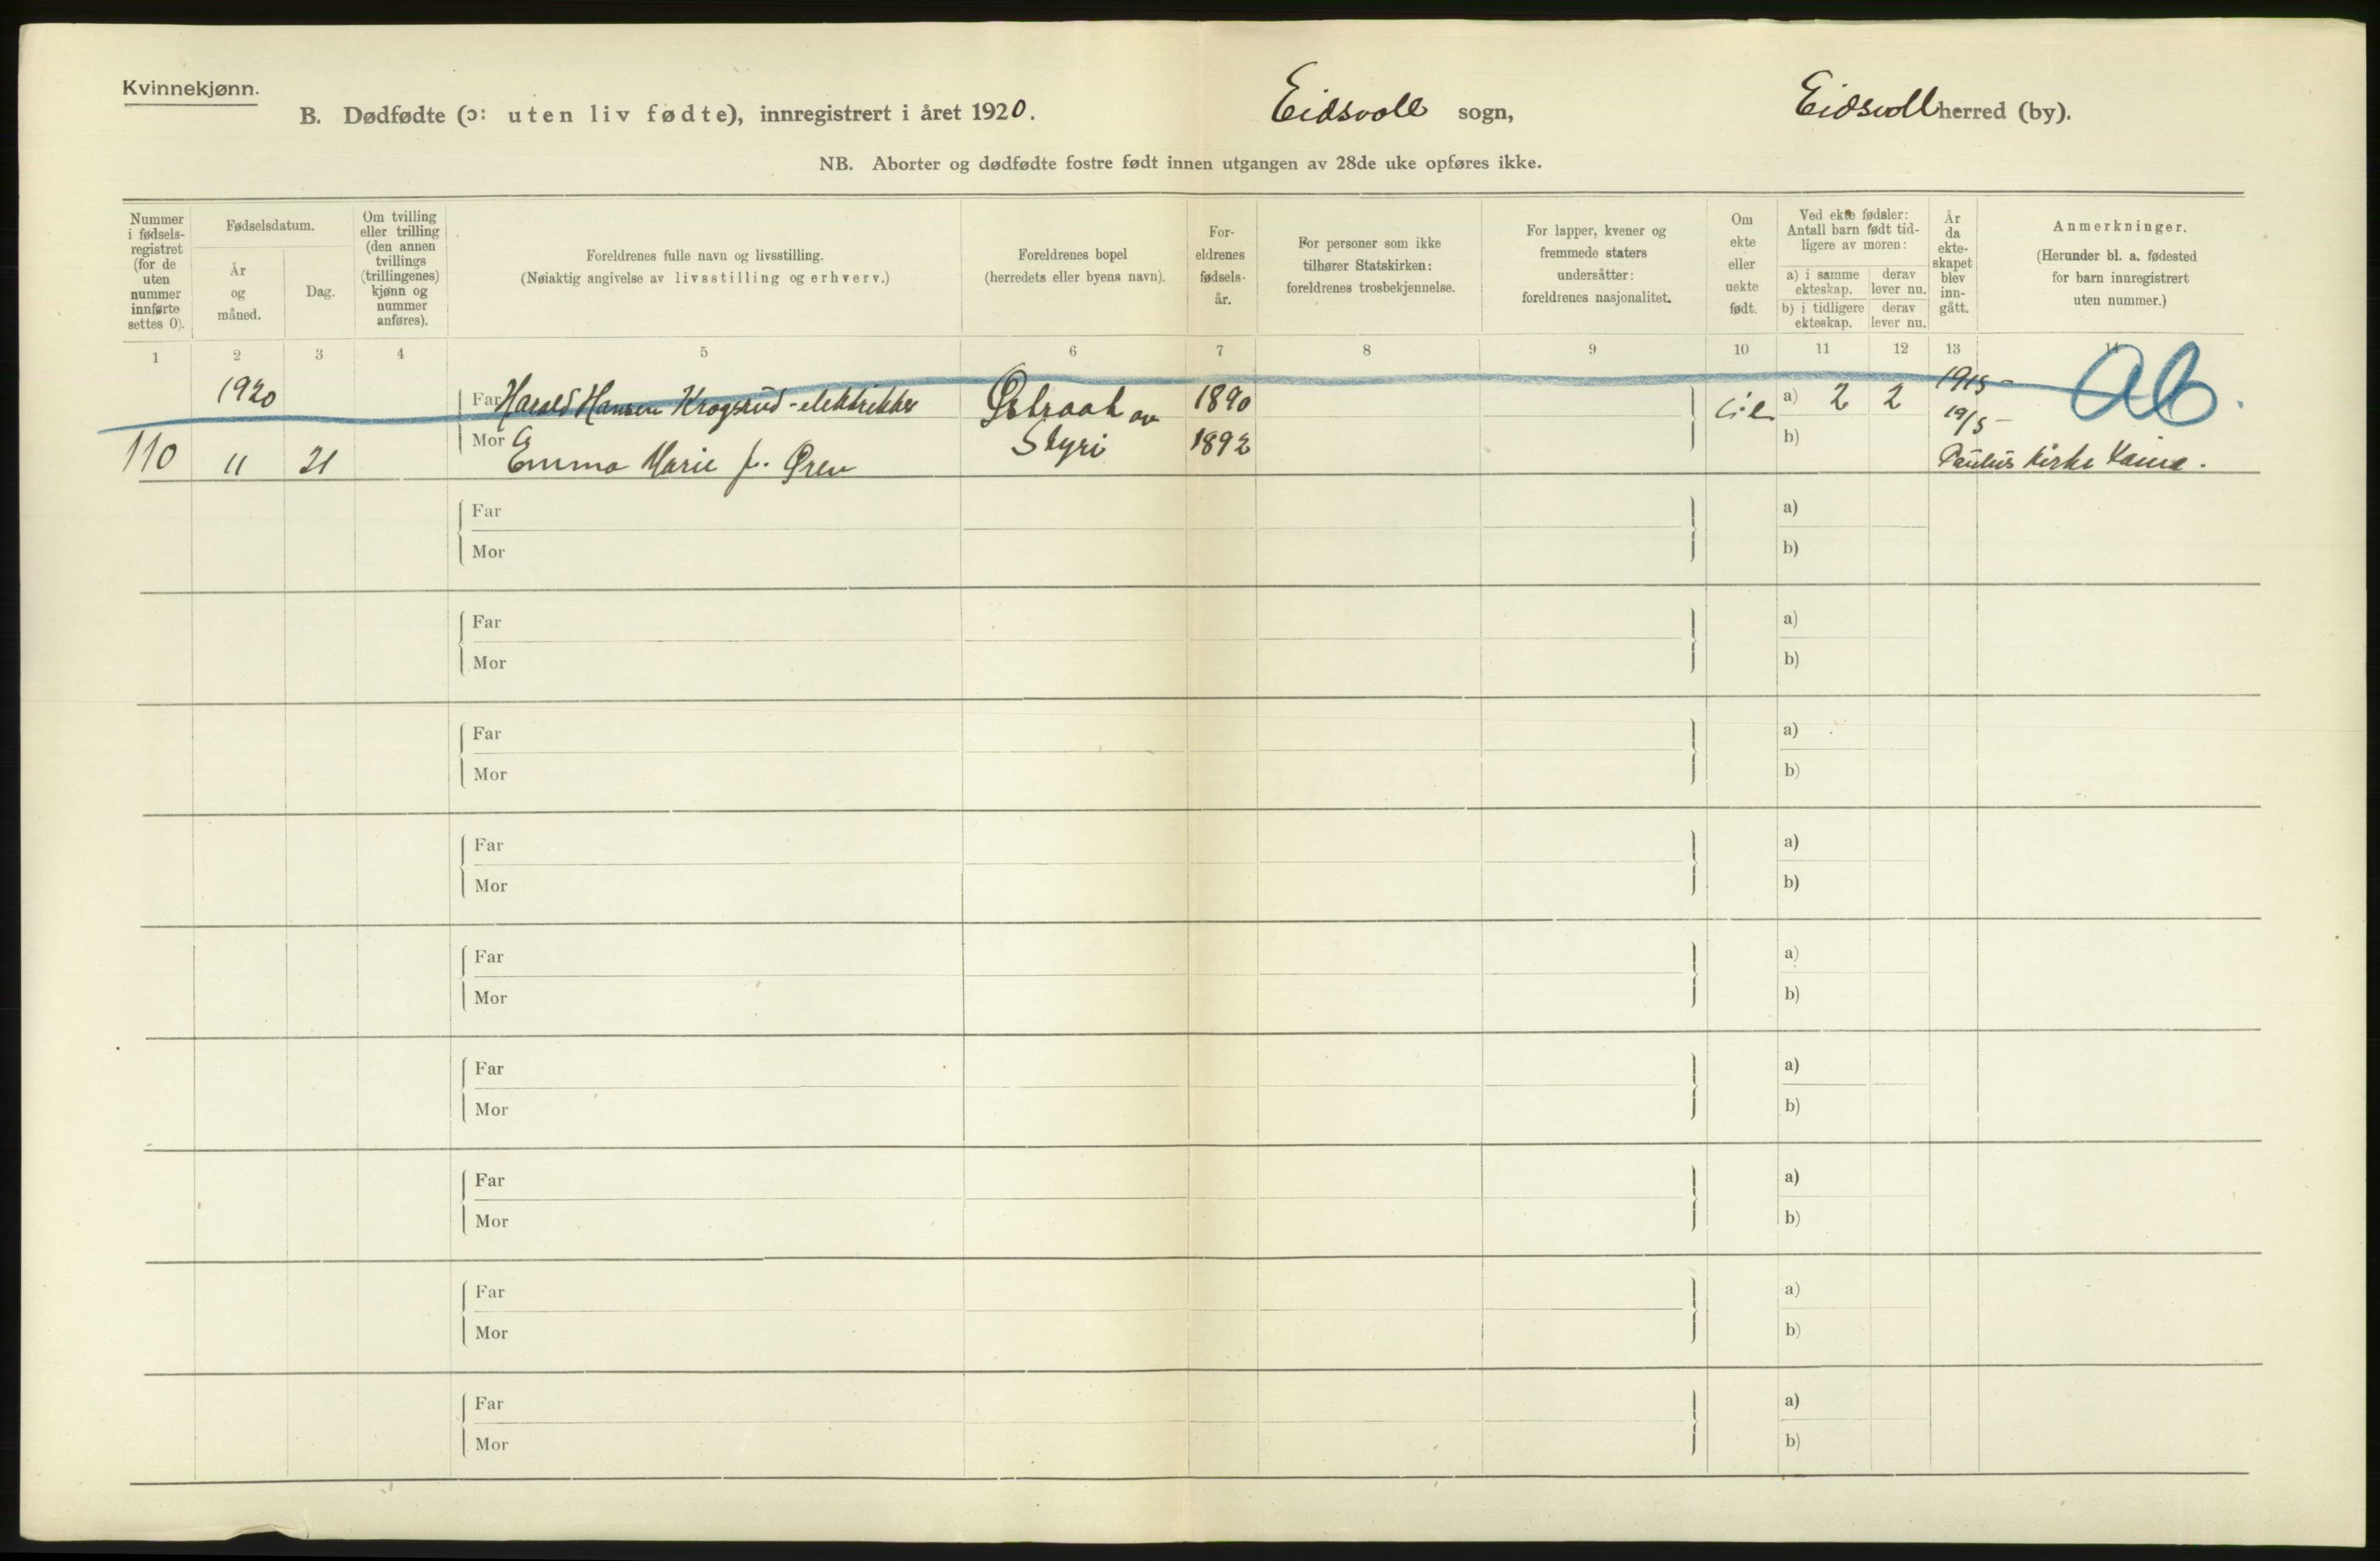 Kvinnekjønn.
B. Dødfødte (ɔ: uten liv fødte), innregistrert i året 1920. Eidsvoll sogn, Eidsvoll herred (by).
NB. Aborter og dødfødte fostre født innen utgangen av 28de uke opføres ikke.
Nummer i fødsels-registret (for de uten nummer innførte settes 0).
Fødselsdatum.
År og måned.
Dag.
Om tvilling eller trilling (den annen tvillings (trillingenes) kjønn og nummer anføres).
Foreldrenes fulle navn og livsstilling.
(Nøiaktig angivelse av livsstilling og erhverv.)
Foreldrenes bopel
(herredets eller byens navn).
For-eldrenes fødsels-år.
For personer som ikke tilhører Statskirken: foreldrenes trosbekjennelse.
For lapper, kvener og fremmede staters undersåtter: foreldrenes nasjonalitet.
Om ekte eller uekte født.
Ved ekte fødsler: Antall barn født tid-ligere av moren:
a) i samme ekteskap.
derav lever nu.
b) i tidligere ekteskap.
derav lever nu.
År da ekte-skapet blev inn-gått.
Anmerkninger.
(Herunder bl. a. fødested for barn innregistrert uten nummer.)
1 2 3 4 5 6 7 8 9 10 11 12 13 14
1920 Far Harald Hansen Krogsrud - elektriker Østraat av 1890 a) 2 2 1915 - Ab.
19/5 -
110 11 21 Mor Emma Marie f. Øren Styri 1892 b) Paulus kirke
Far a)
Mor b)
Far a)
Mor b)
Far a)
Mor b)
Far a)
Mor b)
Far a)
Mor b)
Far a)
Mor b)
Far a)
Mor b)
Far a)
Mor b)
Far a)
Mor b)